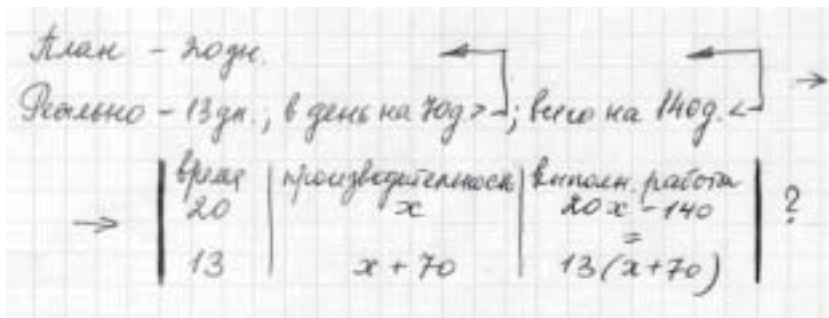 План - 20дн.
Реально - 13дн., в день на 70д > ; всего на 140д. <
время | производительность | выполн. работа
20 x 20x - 140 ?
=
13 x + 70 13(x+70)